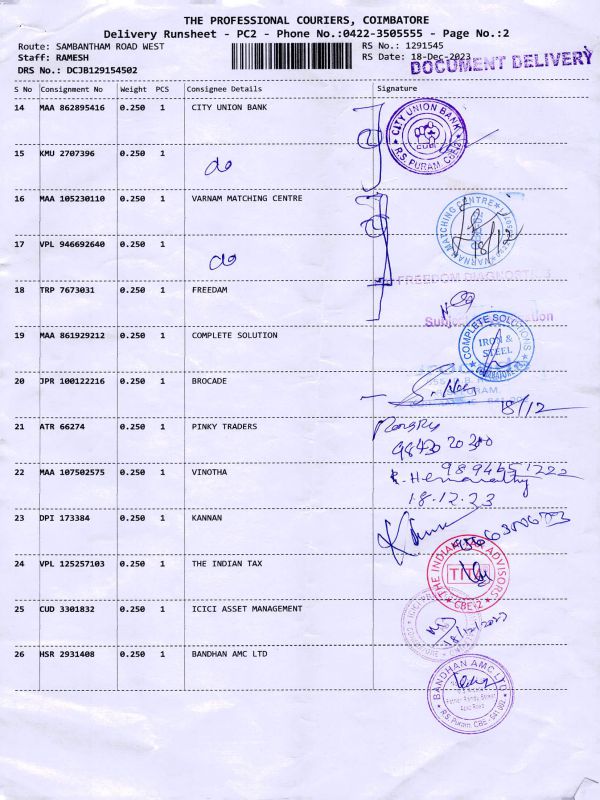 THE PROFESSIONAL COURIERS, COIMBATORE
Delivery Runsheet - PC2 - Phone No.:0422-3505555 - Page No.:2
Route: SAMBANTHAM ROAD WEST RS No.: 1291545
Staff: RAMESH RS Date: 18-Dec-2023
DRS No.: DCJB129154502 DOCUMENT DELIVERY
S No Consignment No Weight PCS Consignee Details Signature
14 MAA 862895416 0.250 1 CITY UNION BANK
CITY UNION BANK
CUB
R.S. PURAM, CBE-2
15 KMU 2707396 0.250 1 do
16 MAA 105230110 0.250 1 VARNAM MATCHING CENTRE
VARNAM MATCHING CENTRE
18/12
17 VPL 946692640 0.250 1 do
FREEDOM DIAGNOSTICS
18 TRP 7673031 0.250 1 FREEDAM
19 MAA 861929212 0.250 1 COMPLETE SOLUTION
COMPLETE SOLUTIONS
IRON &
STEEL
20 JPR 100122216 0.250 1 BROCADE
18/12
21 ATR 66274 0.250 1 PINKY TRADERS
98430 20300
22 MAA 107502575 0.250 1 VINOTHA
9894651222
18.12.23
23 DPI 173384 0.250 1 KANNAN
24 VPL 125257103 0.250 1 THE INDIAN TAX
THE INDIAN TAX ADVISORS
TITA
CBE-2
25 CUD 3301832 0.250 1 ICICI ASSET MANAGEMENT
18/12/2023
26 HSR 2931408 0.250 1 BANDHAN AMC LTD
BANDHAN AMC LTD
R.S. Puram, CBE - 641 002